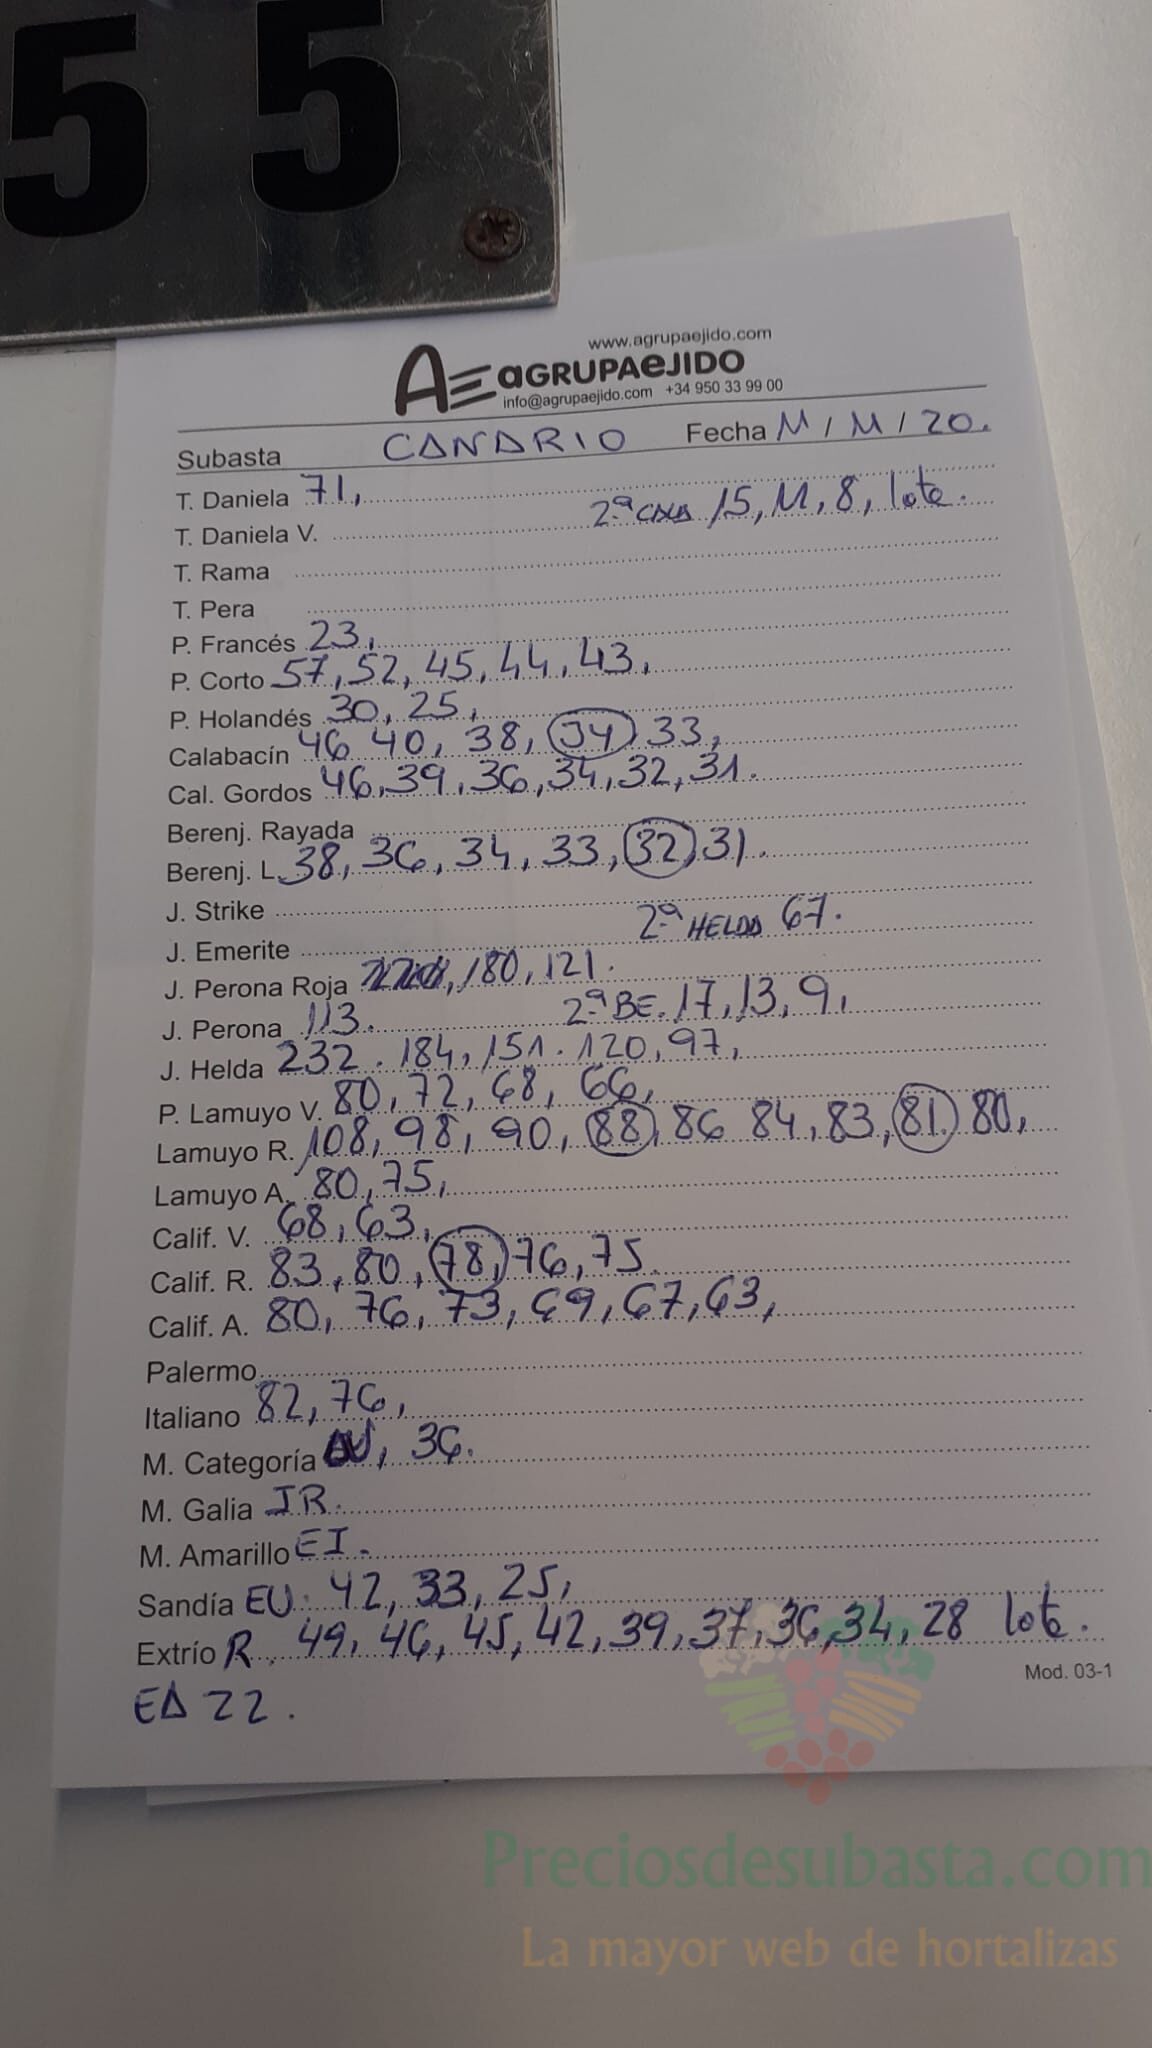 55
www.agrupaejido.com
AE aGRUPAeJIDO
info@agrupaejido.com +34 950 33 99 00
Subasta CANARIO Fecha 11 / 11 / 20.
T. Daniela 71,
2ª CALA 15, 11, 8, lote.
T. Daniela V.
T. Rama
T. Pera
P. Francés 23,
P. Corto 57, 52, 45, 44, 43,
P. Holandés 30, 25,
Calabacín 46 40, 38, 34, 33,
Cal. Gordos 46, 39, 36, 34, 32, 31.
Berenj. Rayada
Berenj. L. 38, 36, 34, 33, 32, 31.
J. Strike
2ª HELDA 67.
J. Emerite
J. Perona Roja 180, 121.
J. Perona 113. 2ª BE. 17, 13, 9,
J. Helda 232. 184, 151. 120, 97,
P. Lamuyo V. 80, 72, 68, 66,
Lamuyo R. 108, 98, 90, 88, 86 84, 83, 81. 80,
Lamuyo A. 80, 75,
Calif. V. 68, 63,
Calif. R. 83, 80, 78, 76, 75.
Calif. A. 80, 76, 73, 69, 67, 63,
Palermo
Italiano 82, 76,
M. Categoría 36.
M. Galia IR.
M. Amarillo EI.
Sandía EU 42, 33, 25,
Extrío R. 49, 46, 45, 42, 39, 37, 36, 34, 28 lote.
Mod. 03-1
EA 22.
Preciosdesubasta.com
La mayor web de hortalizas